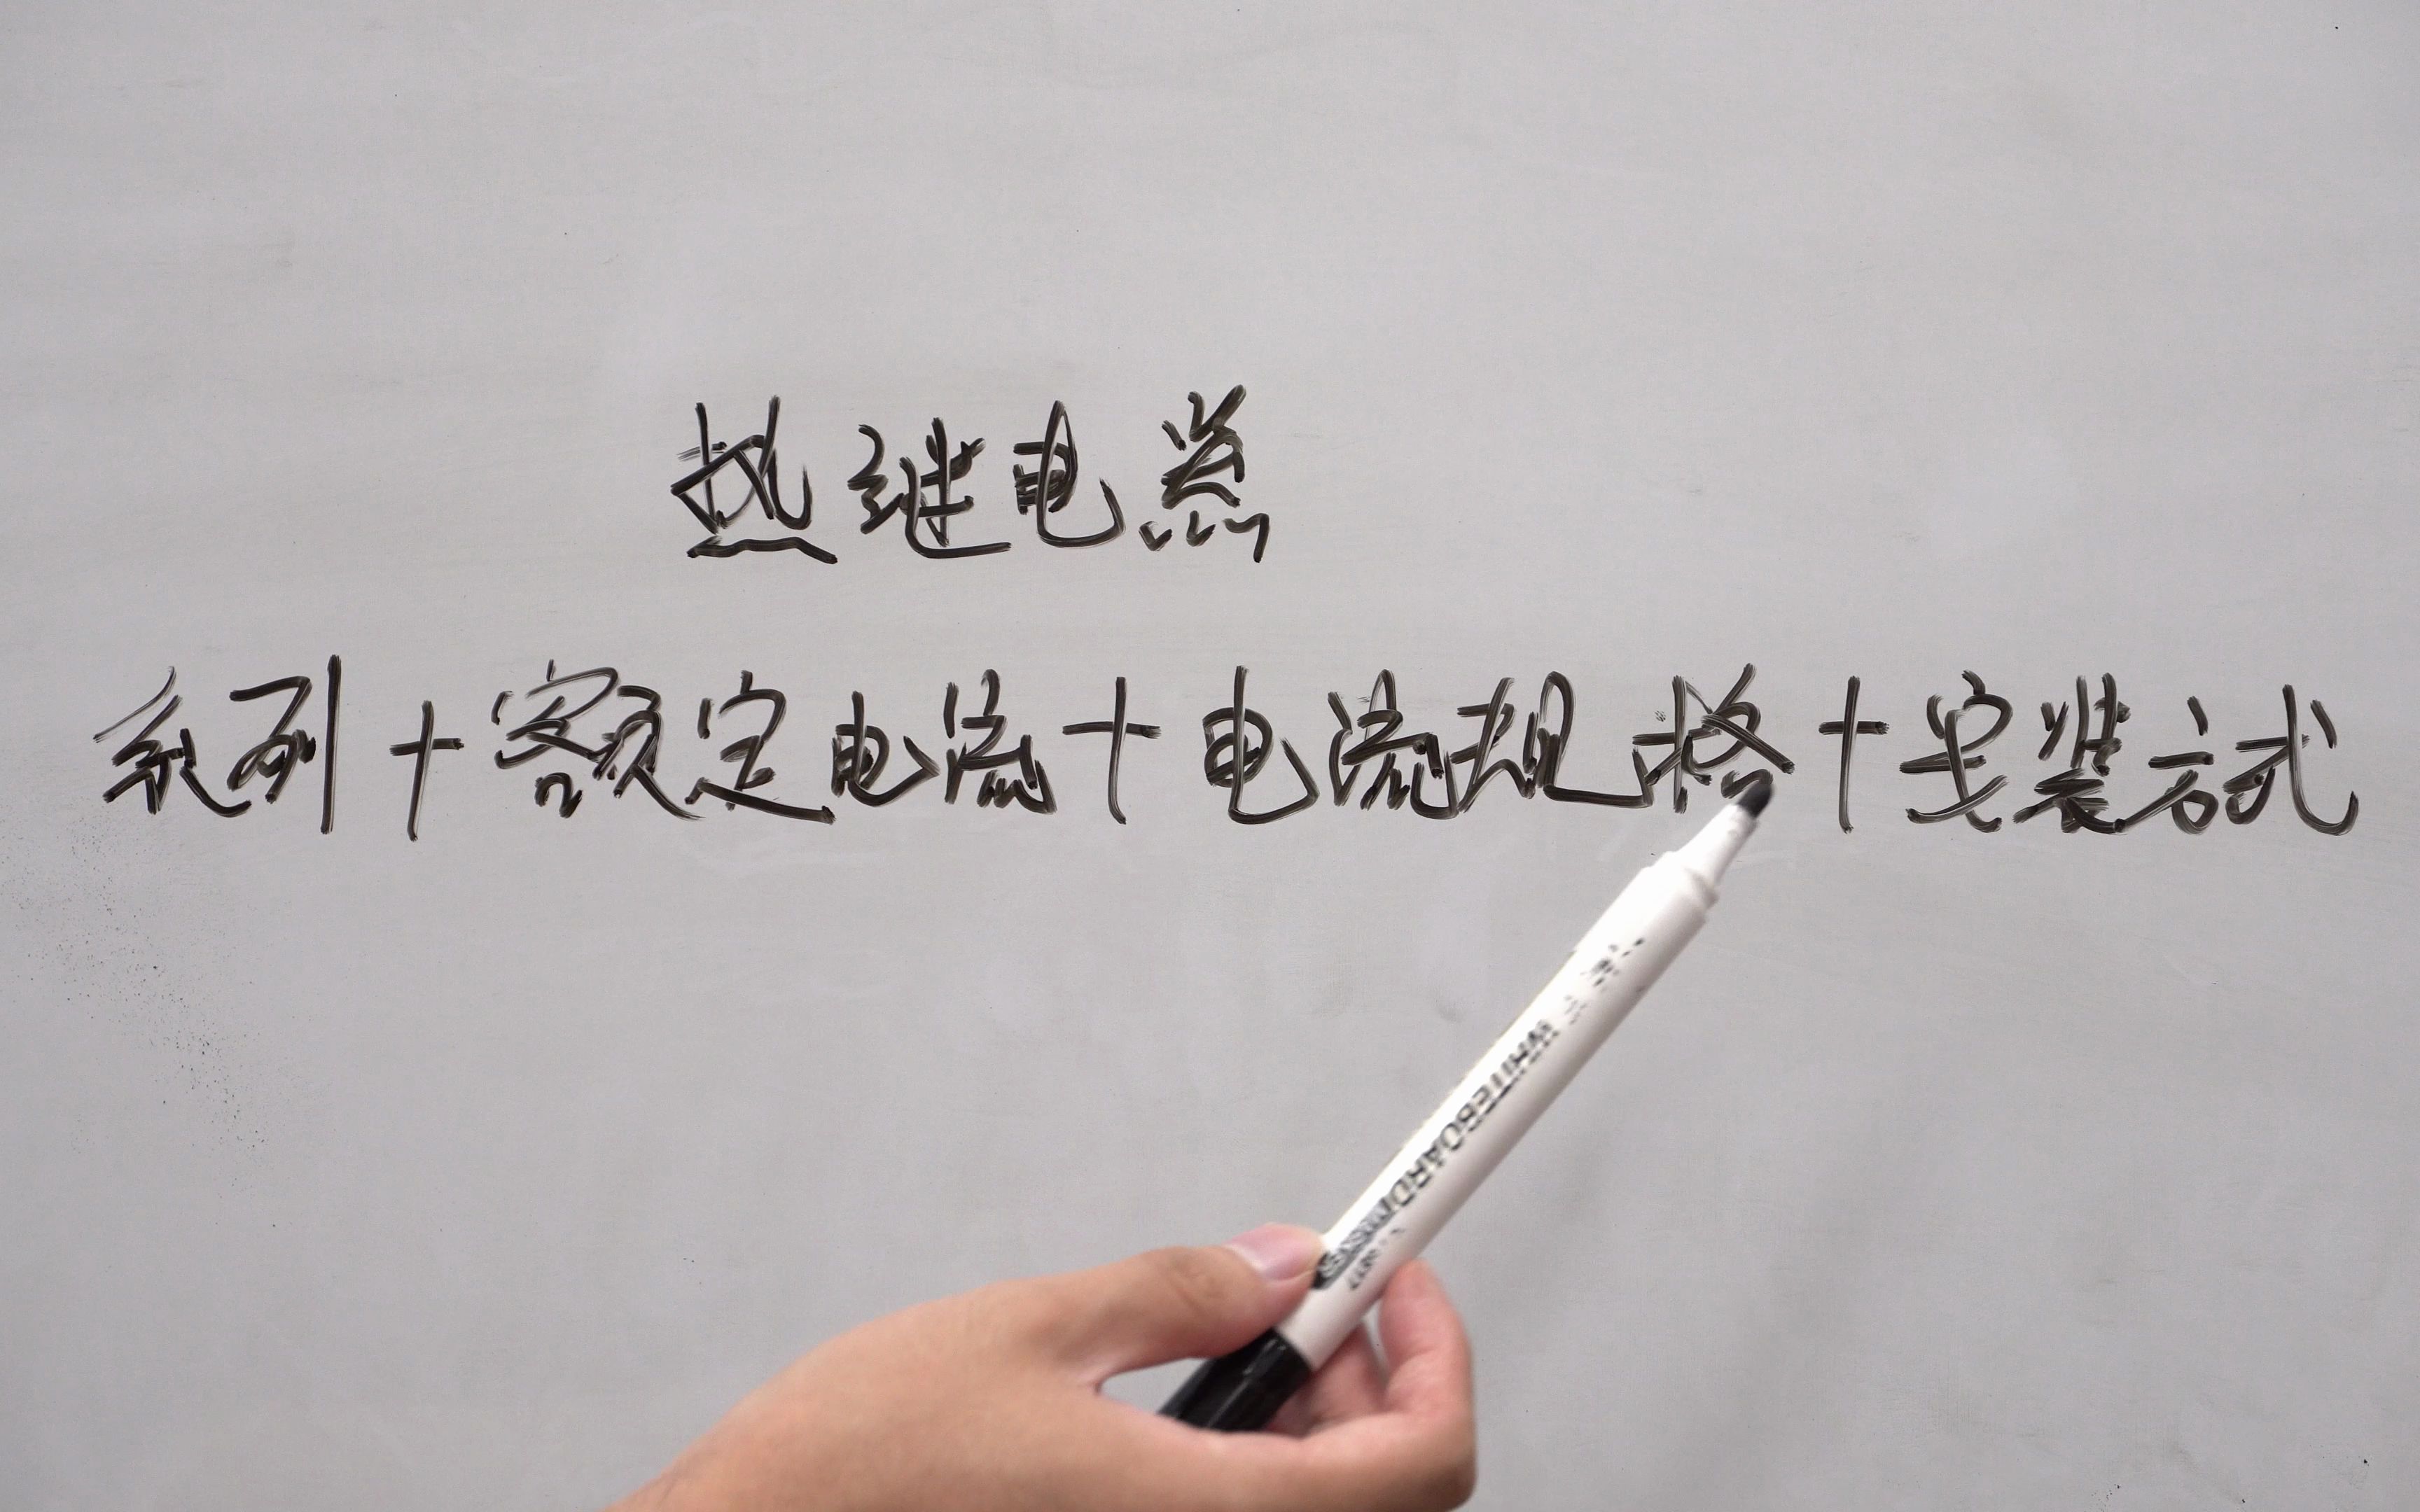 热继电器
系列+额定电流+电流规格+安装方式
WHITEBOARD